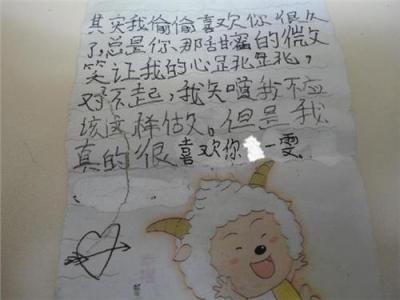 其实我偷偷喜欢你很久
了,总是你那甜蜜的微
笑让我的心跳跳,
对不起,我知道我不应
该这样做。但是我
真的很喜欢你 一雯